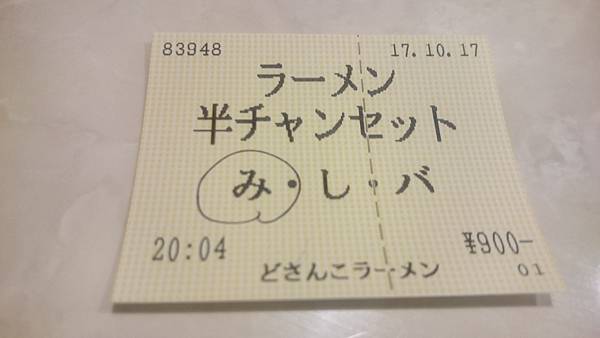 83948 17.10.17
ラーメン
半チャンセット
み・し・バ
20:04 ¥900-
どさんこラーメン 01